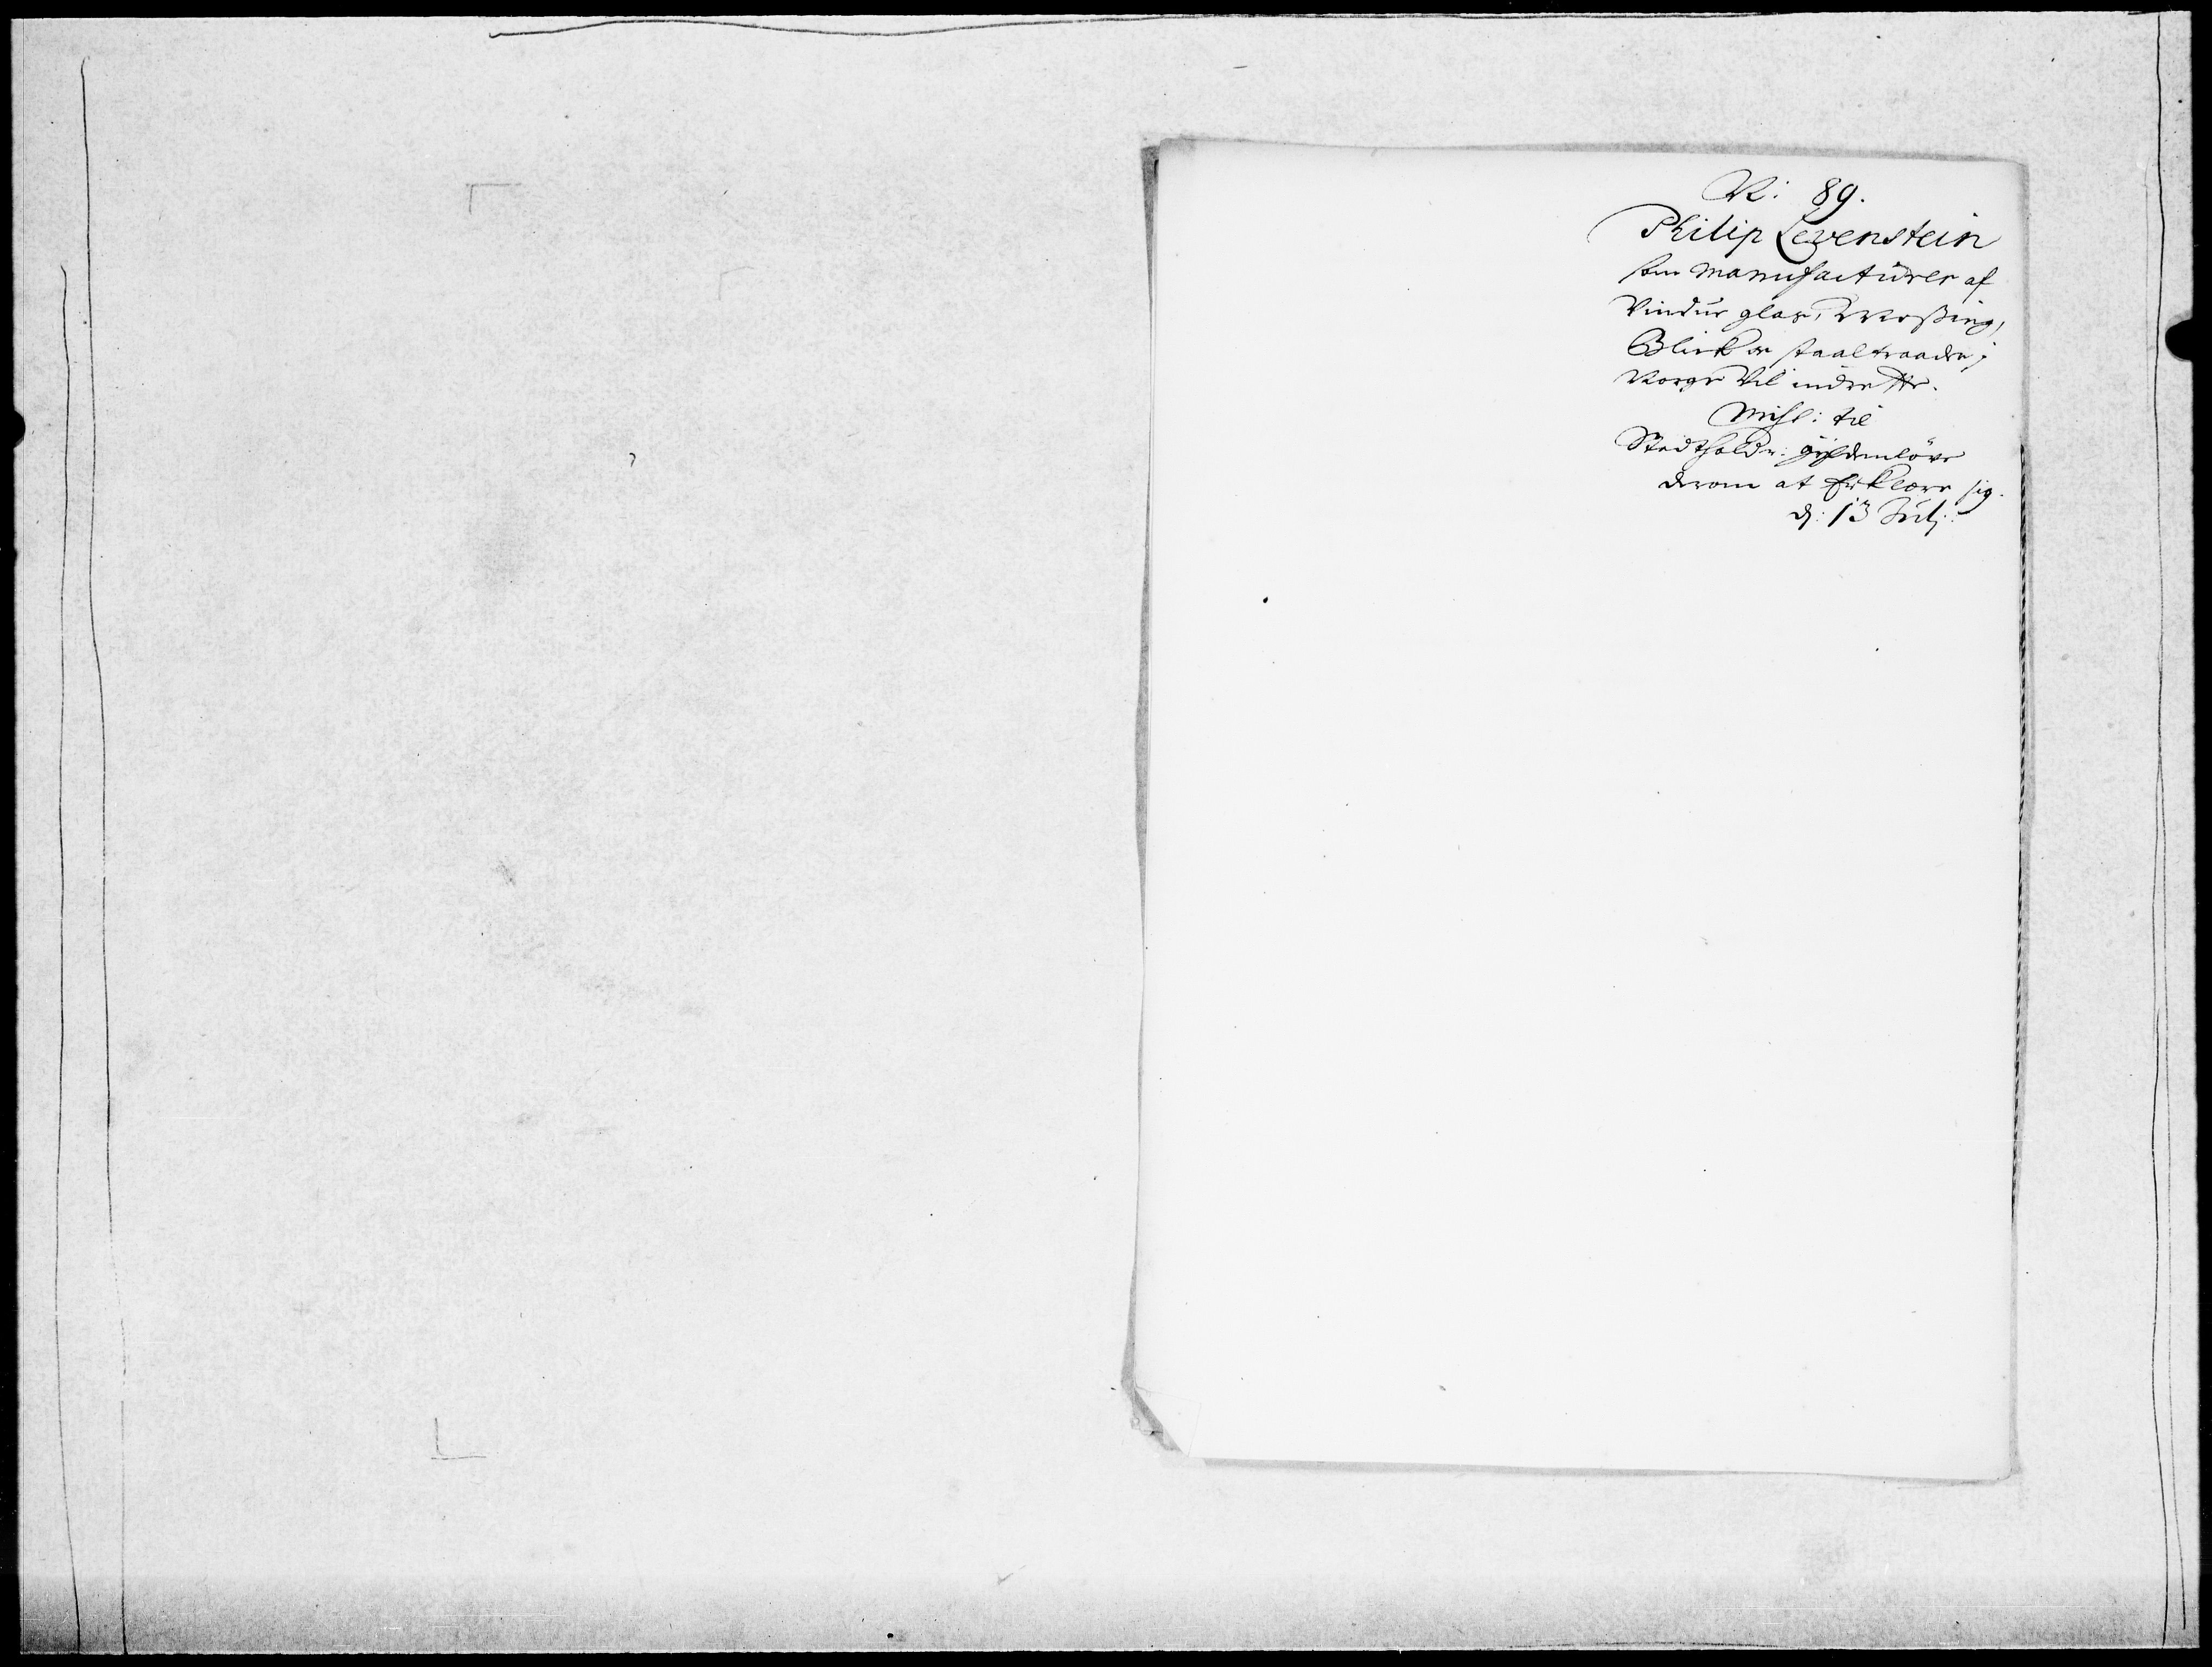 N: 89.
Philip Levenstein
som Manufacturer af
Vindus glas, Messing,
Blick og staaltraade j
Norge vil indrette.
Miss: til
Stadtholdr: Gyldenlöve
derom at Erklære sig.
d: 13 Julj: